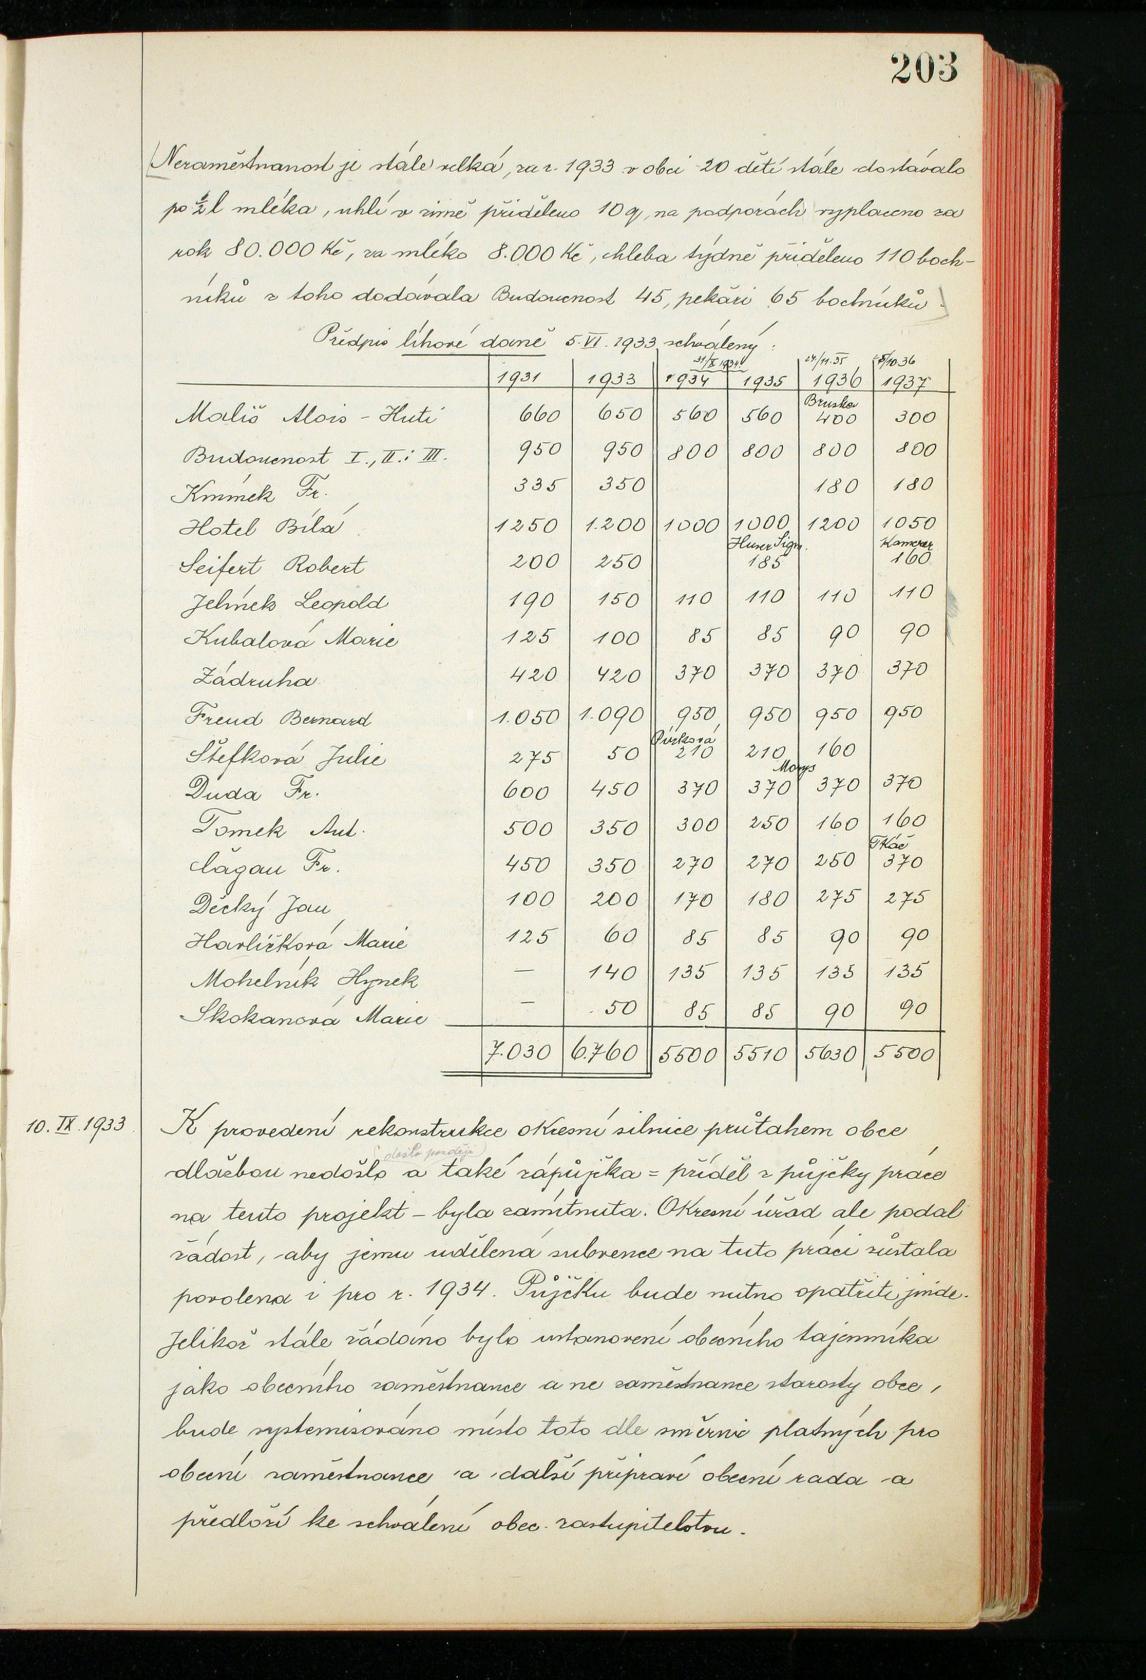 203
Nezaměstnanost je stále velká, za r. 1933 v obci 20 dětí stále dostávalo
po ½ l mléka, uhlí v zimě přiděleno 10 q, na podporách vyplaceno za
rok 80.000 Kč, za mléko 8.000 Kč, chleba týdně přiděleno 110 boch-
níků z toho dodávala Budoucnost 45, pekáři 65 bochníků.
Předpis lihové daně 5.VI.1933 schválený:
31/X 1934 24/11.35 5/10 36
1931 1933 1934 1935 1936 1937
Mališ Alois - Huti 660 650 560 560 Bruska 400 300
Budoucnost I., II. i III. 950 950 800 800 800 800
Kmínek Fr. 335 350 180 180
Hotel Bílá 1250 1.200 1000 1000 1200 1050
Seifert Robert 200 250 Huser Sigm. 185 Kamerer 160
Jelínek Leopold 190 150 110 110 110 110
Kubalová Marie 125 100 85 85 90 90
Zádruha 420 420 370 370 370 370
Freud Bernard 1.050 1.090 950 950 950 950
Štefková Julie 275 50 210 210 160
Duda Fr. 600 450 370 370 Morys 370 370
Tomek Ant. 500 350 300 250 160 160
Čagan Fr. 450 350 270 270 250 Tkáč 370
Děcký Jan 100 200 170 180 275 275
Havlíčková Marie 125 60 85 85 90 90
Mohelník Hynek — 140 135 135 135 135
Skokanová Marie — 50 85 85 90 90
7.030 6.760 5500 5510 5630 5500
10. IX. 1933
K provedení rekonstrukce okresní silnice průtahem obce
(došlo později)
dlažbou nedošlo a také zápůjčka = příděl z půjčky práce
na tento projekt - byla zamítnuta. Okresní úřad ale podal
žádost, aby jemu udělená subvence na tuto práci zůstala
povolena i pro r. 1934. Půjčku bude nutno opatřiti jinde.
Jelikož stále žádáno bylo ustanovení obecního tajemníka
jako obecního zaměstnance a ne zaměstnance starosty obce,
bude systemisováno místo toto dle směrnic platných pro
obecní zaměstnance a další připraví obecní rada a
předloží ke schválení obec. zastupitelstvu.